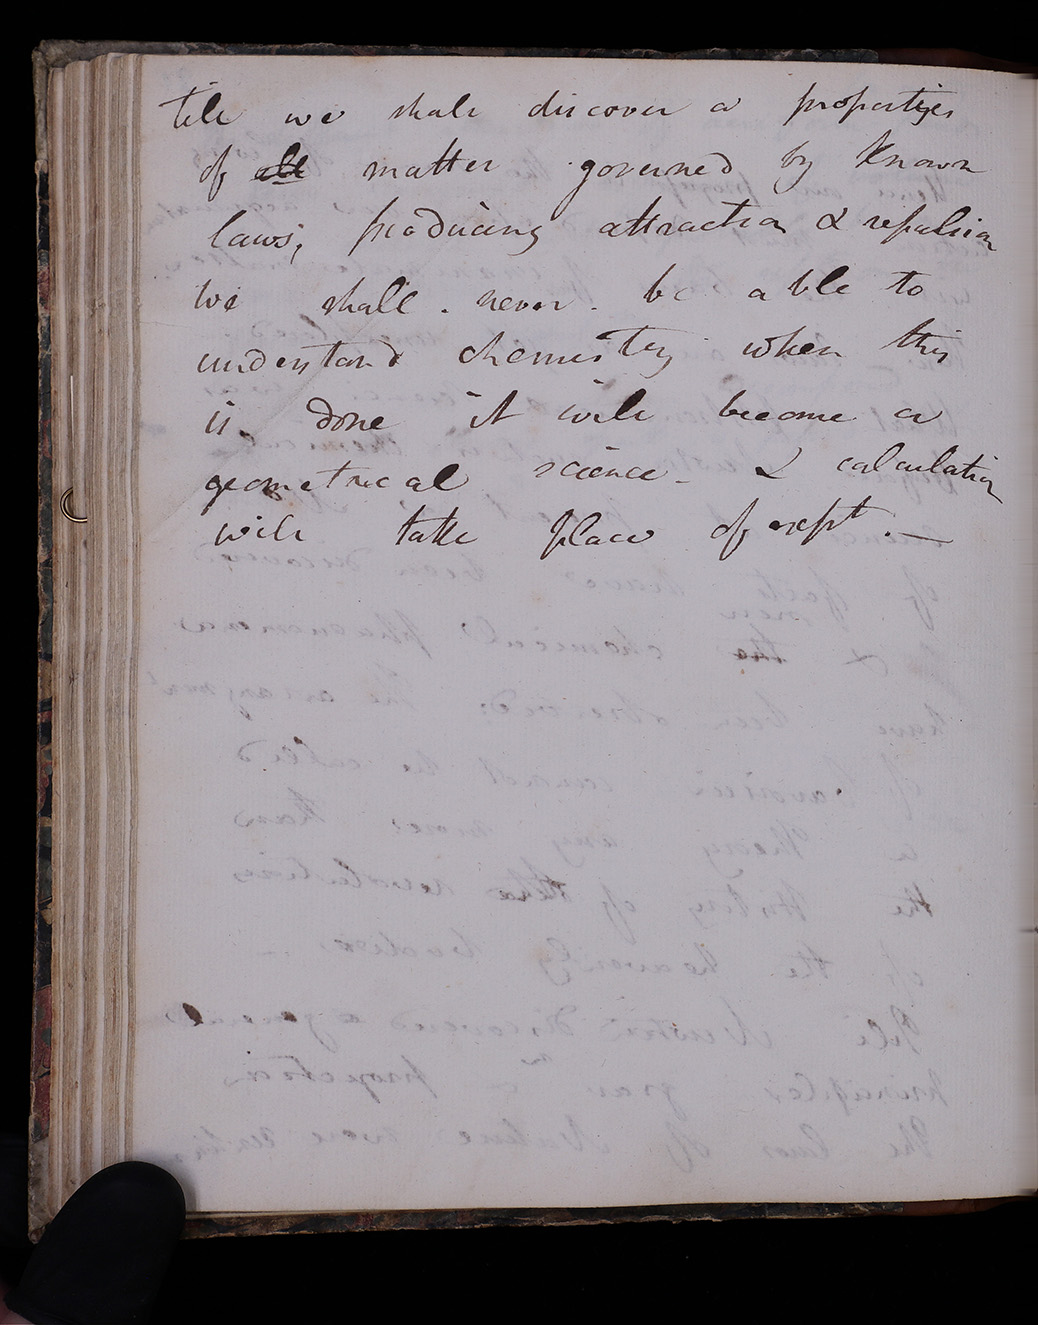 till we shall discover a properties
of all matter governed by known
laws, producing attraction & repulsion
we shall never be able to
understand chemistry when this
is done it will become a
geometrical science - & calculation
will take place of expt. —